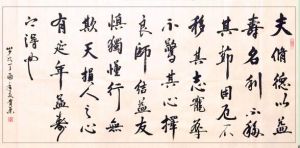 夫脩德以益
壽名利不移
其節困厄不
移其志寵辱
不驚其心擇
良師結益友
慎獨慬行無
欺天損人之心
有延年益壽
歲次丁酉年